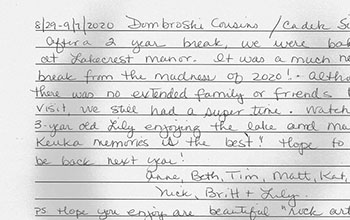 8/29-9/7/2020 Dombroski Cousins / Cadek
After a 2 year break, we were
at Lakecrest manor. It was a much
break from the madness of 2020! Altho
there was no extended family or friends
visit, we still had a super time. Watch
3-year old Lily enjoying the lake and
Keuka memories is the best! Hope to
be back next year!
Anne, Beth, Tim, Matt, Kat,
Nick, Britt + Lily
PS. Hope you enjoy are beautiful "rock